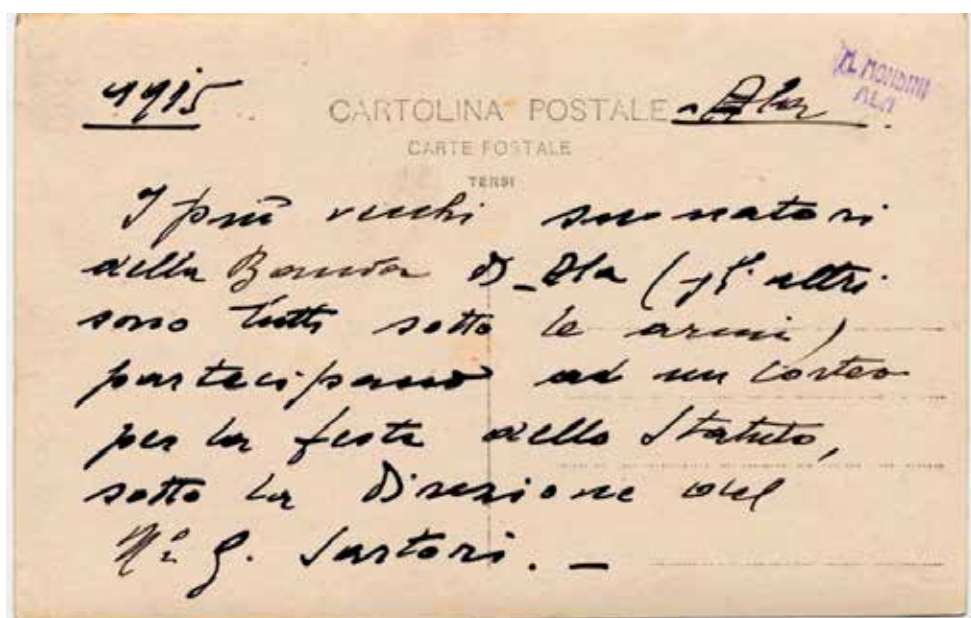 1915
CARTOLINA POSTALE - Ala
M. MONDINI
ALA
CARTE POSTALE
TENSI
I più vecchi suonatori
della Banda di Ala (gli altri
sono tutti sotto le armi)
partecipano ad un corteo
per la festa dello Statuto,
sotto la Direzione del
M° G. Sartori. _